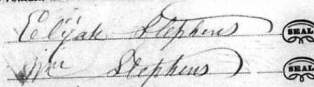 Elijah Stephens SEAL
Wm Stephens SEAL